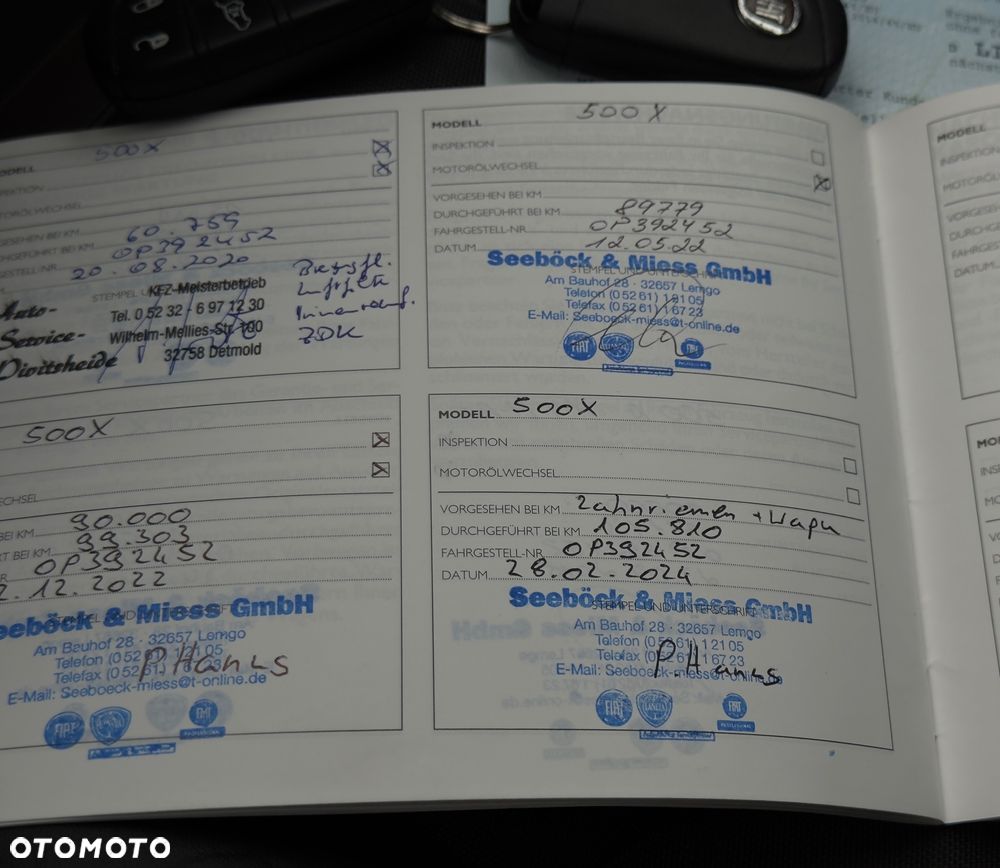 s LI
MODELL 500X
INSPEKTION
MOTORÖLWECHSEL
VORGESEHEN BEI KM
DURCHGEFÜHRT BEI KM 89779
FAHRGESTELL-NR. 0P392452
DATUM 12.05.22
Seeböck & Miess GmbH
STEMPEL UND UNTERSCHRIFT
Am Bauhof 28 · 32657 Lemgo
Telefon (0 52 61) 1 21 05
Telefax (0 52 61) 1 67 23
E-Mail: Seeboeck-miess@t-online.de
FIAT
LANCIA
FIAT
PROFESSIONAL
ODELL 500X
SPEKTION
TORÖLWECHSEL
GESEHEN BEI KM
GEFÜHRT BEI KM 60.759
GESTELL-NR. 0P392452
20.08.2020
STEMPEL
KFZ-Meisterbetrieb
Tel. 0 52 32 - 6 97 12 30
Wilhelm-Mellies-Str. 100
32758 Detmold
Auto-
Service-
Dioitsheide
ZDK
500X
ECHSEL
BEI KM 90.000
RT BEI KM 99.303
NR 0P392452
2.12.2022
eeböck & Miess GmbH
Am Bauhof 28 · 32657 Lemgo
Telefon (0 52 61) 1 21 05
Telefax (0 52 61) 1 67 23
E-Mail: Seeboeck-miess@t-online.de
P. Hanus
FIAT
LANCIA
FIAT
PROFESSIONAL
MODELL 500X
INSPEKTION
MOTORÖLWECHSEL
VORGESEHEN BEI KM Zahnriemen + Wapu
DURCHGEFÜHRT BEI KM 105.810
FAHRGESTELL-NR. 0P392452
DATUM 28.02.2024
Seeböck & Miess GmbH
STEMPEL UND UNTERSCHRIFT
Am Bauhof 28 · 32657 Lemgo
Telefon (0 52 61) 1 21 05
Telefax (0 52 61) 1 67 23
E-Mail: Seeboeck-miess@t-online.de
P. Hanus
FIAT
LANCIA
FIAT
PROFESSIONAL
MODELL
INSPEKTION
MOTORÖLWE
VORGESE
DURCHG
FAHRG
DATUM
MO
INS
MO
VO
DU
FA
DA
OTOMOTO